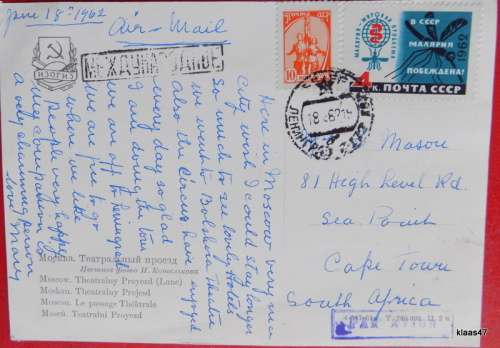 June 18th 1962
Air-Mail
ИНТУРИСТ
МЕЖДУНАРОДНОЕ
Here in Moscow very nice
City wish I could stay longer
So much to see lovely Hotels
went to Bolshoi Theatre
also the Circus have enjoyed
every day so glad
I am doing the tour
we are off to Leningrad
we are free to go
where we like
people very happy
my companion is
a very charming person
love Mary
Москва. Театральный проезд
Цветное фото Н.
Moscow. Theatralny Proyezd (Lane)
Moskau. Theatralny Projesd
Moscou. Le passage Théâtrale
Mosca. Teatralni Proyezd
10
ВСЕМИРНАЯ
МАЛЯРИЕЙ
В СССР
МАЛЯРИЯ
ПОБЕЖДЕНА!
1962
4 к. ПОЧТА СССР
ЛЕНИНГРАД
18 6 62
Mason
81 High Level Rd.
Sea Point
Cape Town
South Africa
PAR AVION
klaas47